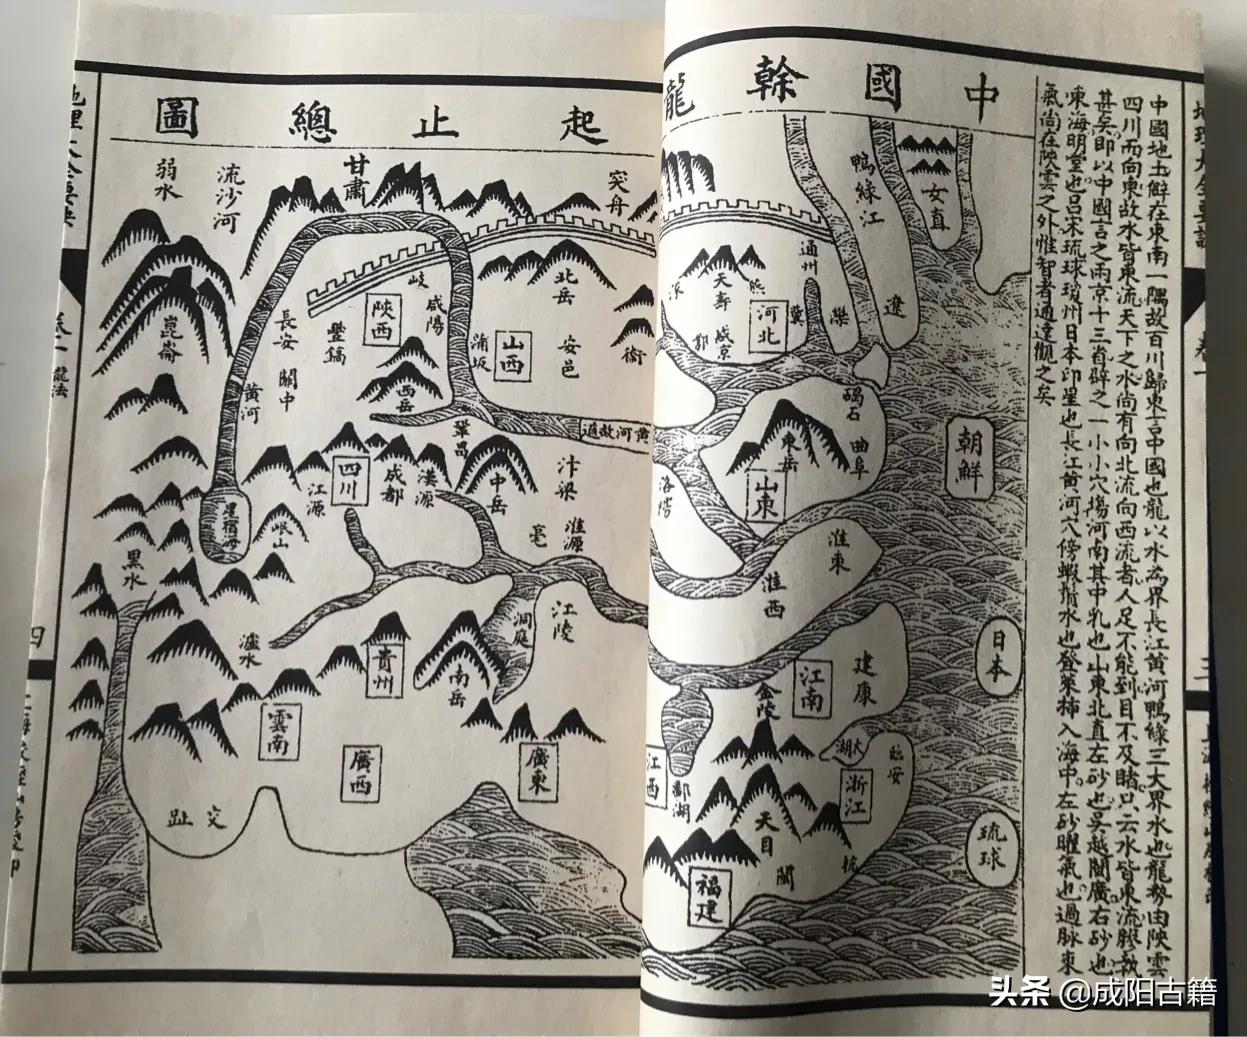 中國幹龍
起止總圖
中國地土僻在東南一隅故百川歸東言中國也龍以水為界長江黃河鴨綠三大界水也龍勢由陝雲
四川而向東故水皆東流天下之水尚有向北流向西流者人足不能到目不及睹只云水皆東流膠執
甚矣即以中國言之兩京十三省碎之一小小穴塲河南其中乳也山東北直左砂也吳越閩廣右砂也
東海明堂也呂宋琉球瓊州日本印星也長江黃河穴傍蝦鬚水也登萊揷入海中左砂曜氣也過脉東
氣尚在陝雲之外惟智者通達觀之矣
女直
鴨綠江
遼
通州
灤
冀
河北
熊
天壽
咸京
碣石
曲阜
東岳
山東
朝鮮
洛陽
淮東
淮西
日本
建康
江南
金陵
太湖
臨安
浙江
江西
鄱湖
天目
杭
閩
福建
琉球
突舟
甘肅
流沙河
弱水
北岳
岐
咸陽
陝西
豐鎬
長安
關中
黃河
崑崙
山西
蒲坂
安邑
衛
西岳
黃河故道
鞏昌
四川
成都
漢源
江源
中岳
汴梁
星宿海
岷山
亳
淮源
黑水
洞庭
江陵
瀘水
貴州
南岳
雲南
廣西
廣東
交趾
四
三